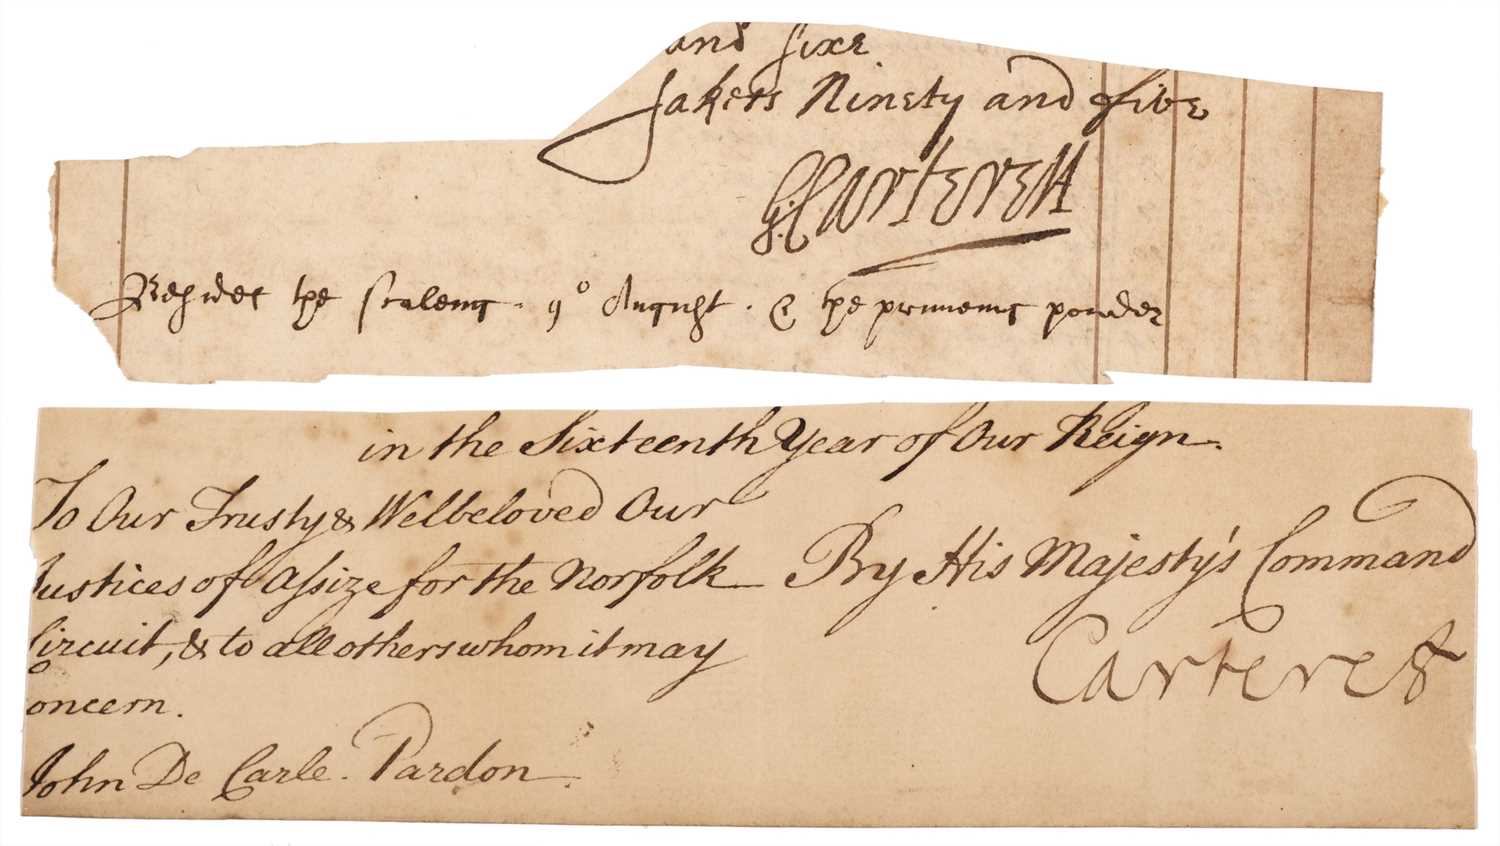 and sixe
sakers Ninety and five
G: Carterett
Besides the 9º August. & the powder
in the Sixteenth Year of Our Reign.
To Our Trusty & Welbeloved Our
Justices of Assize for the Norfolk
By His Majesty's Command
Circuit, & to all others whom it may
Carteret
oncern.
John De Carle. Pardon